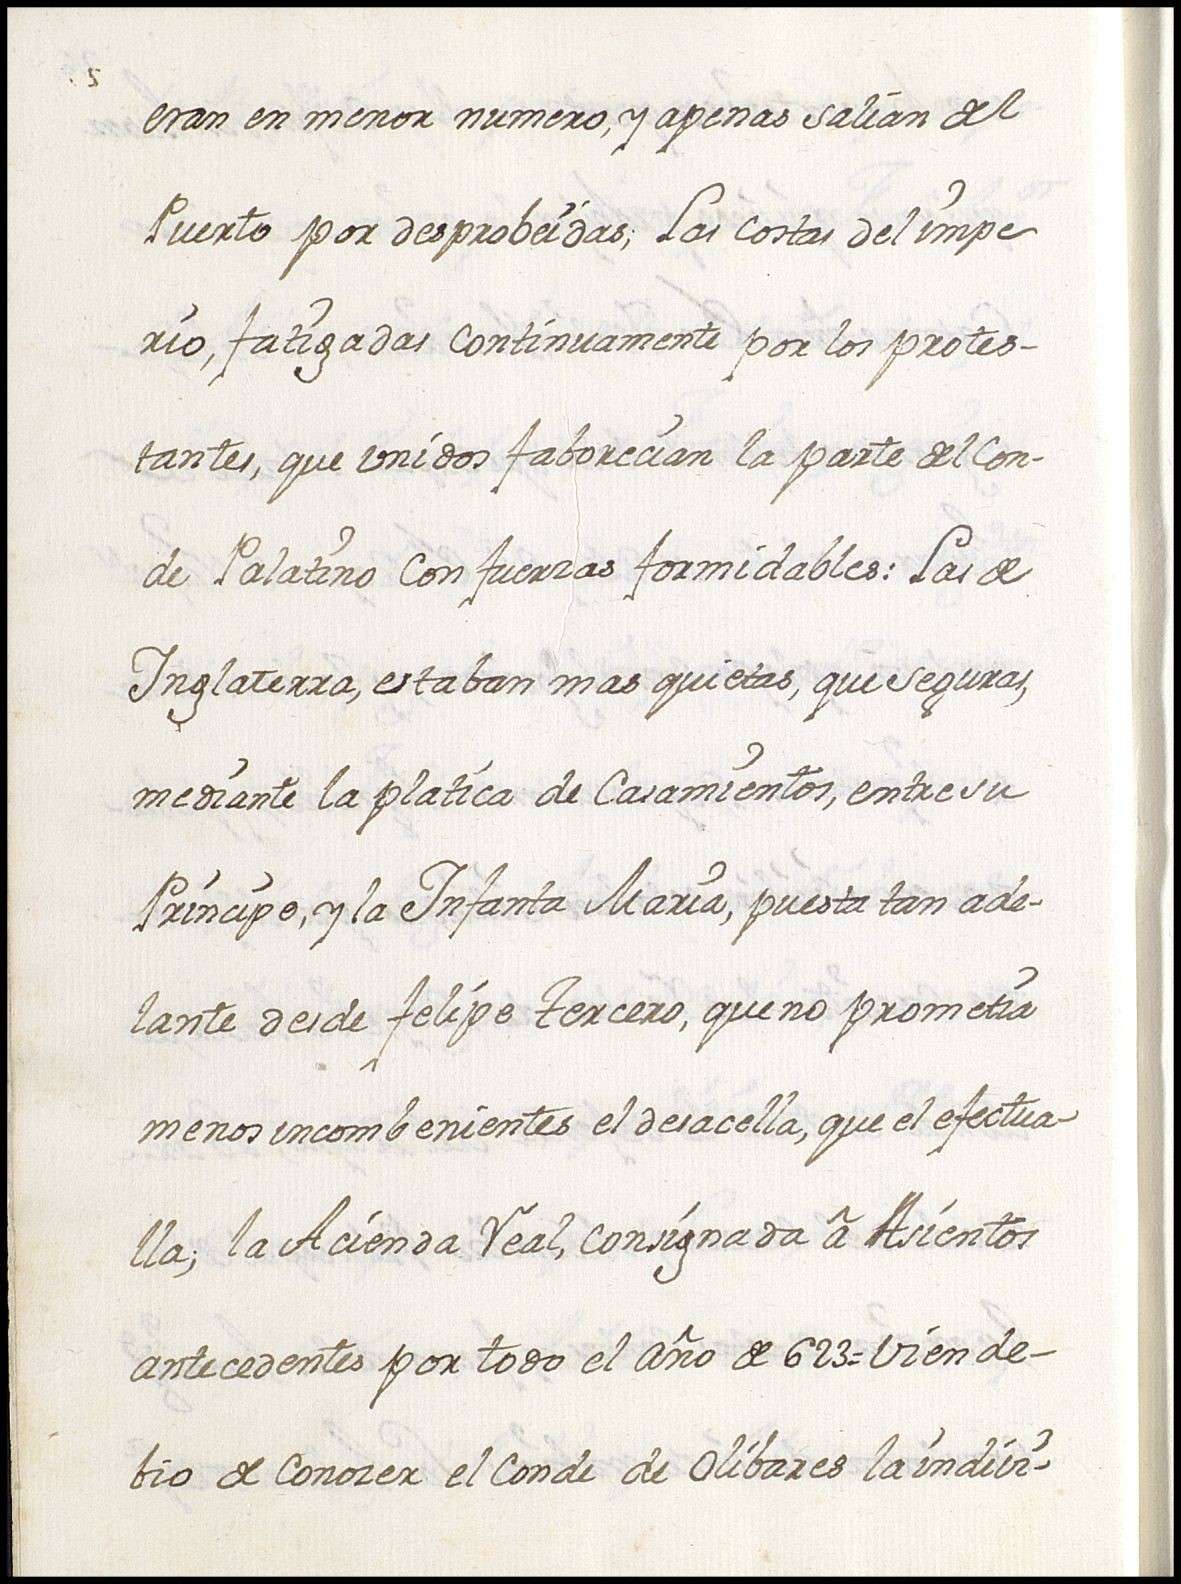 eran en menor numero, y apenas salian del
Puerto por desprobeidas; Las costas del impe
rio, fatigadas continuamente por los protes-
tantes, que unidos faborecian la parte del Con-
de Palatino con fuerzas formidables: Las de
Inglaterra, estaban mas quietas, que seguras,
mediante la platica de Casamientos, entre su
Principe, y la Infanta Maria, puesta tan ade-
lante desde felipe tercero, que no prometia
menos incombenientes el desacella, que el efectua-
lla; la Acienda Real, consignada â Asientos
antecedentes por todo el año de 623= vien de-
bio de conozer el Conde de Olibares la indivi-